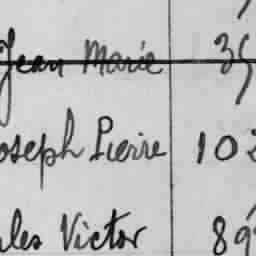 Jean Marie 35
oseph Pierre 102
les Victor 89